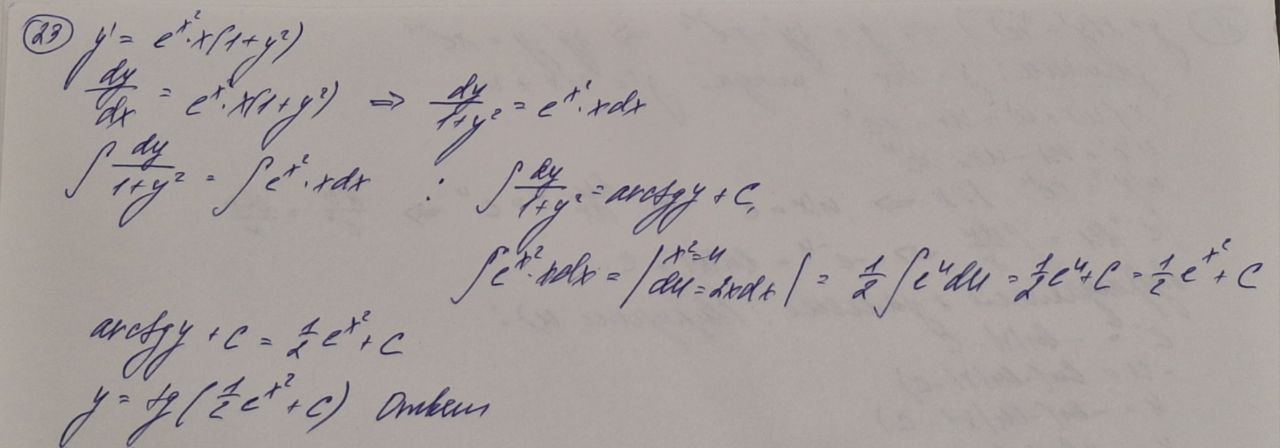 23 y' = e^{x^2} · x(1+y^2)
dy/dx = e^{x^2} · x(1+y^2) ⇒ dy/(1+y^2) = e^{x^2} · xdx
∫ dy/(1+y^2) = ∫ e^{x^2} · xdx : ∫ dy/(1+y^2) = arctgy + C,
∫ e^{x^2} · xdx = | x^2=u du=2xdx | = 1/2 ∫ e^u du = 1/2 e^u + C = 1/2 e^{x^2} + C
arctgy + C = 1/2 e^{x^2} + C
y = tg(1/2 e^{x^2} + C) Ответ